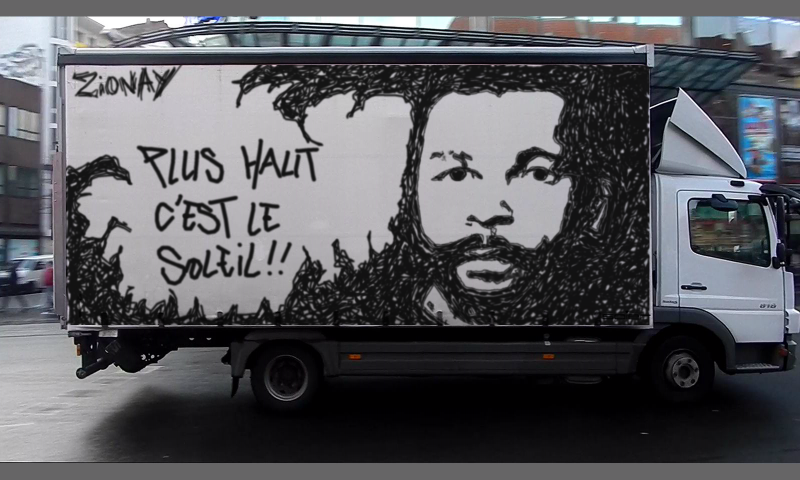 ZiONAY
PLUS HAUT
C'EST LE
SOLEiL!!
616